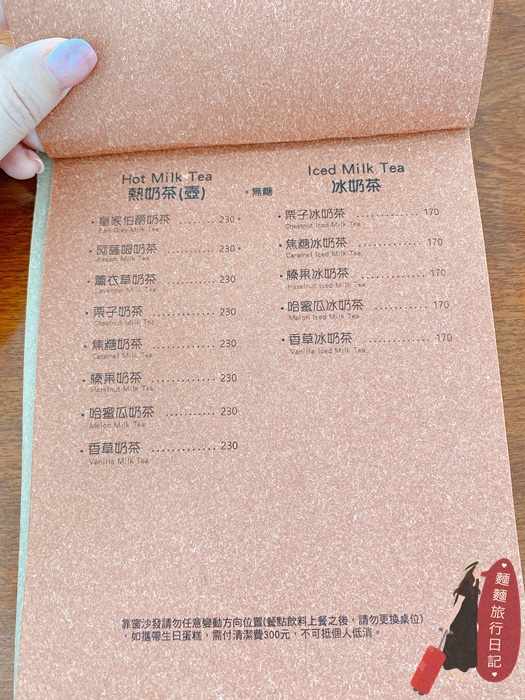 Hot Milk Tea
熱奶茶(壺)
•無糖
•皇家伯爵奶茶 ........ 230•
Earl Grey Milk Tea
•阿薩姆奶茶 .......... 230•
Assam Milk Tea
•薰衣草奶茶 .......... 230
Lavender Milk Tea
•栗子奶茶 ............ 230
Chestnut Milk Tea
•焦糖奶茶 ............ 230
Caramel Milk Tea
•榛果奶茶 ............ 230
Hazelnut Milk Tea
•哈蜜瓜奶茶 ........... 230
Melon Milk Tea
•香草奶茶 ............. 230
Vanilla Milk Tea
Iced Milk Tea
冰奶茶
•栗子冰奶茶 ............. 170
Chestnut Iced Milk Tea
•焦糖冰奶茶 ............. 170
Caramel Iced Milk Tea
•榛果冰奶茶 ............. 170
Hazelnut Iced Milk Tea
•哈蜜瓜冰奶茶 .......... 170
Melon Iced Milk Tea
•香草冰奶茶 ............. 170
Vanilla Iced Milk Tea
靠窗沙發請勿任意變動方向位置(餐點飲料上餐之後，請勿更換桌位)
，如攜帶生日蛋糕，需付清潔費300元，不可抵個人低消。
麵麵旅行日記